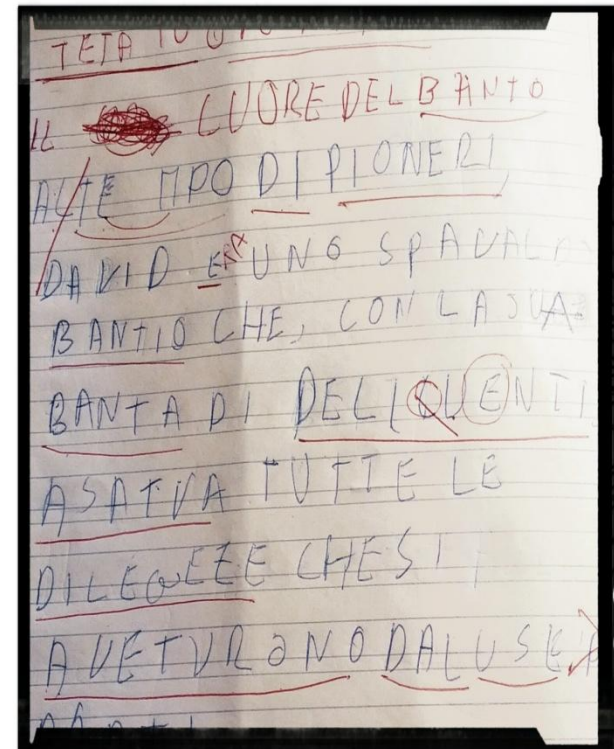 TETA
IL CUORE DEL BANTO
AL TE MPO DI PIONERI,
DAVID ERA UNO SPAVAL
BANTIO CHE, CON LA SUA
BANTA DI DELIQUENTI
ASATVA TUTTE LE
DILEGEZE CHE SI
AVETURANO DAL USE